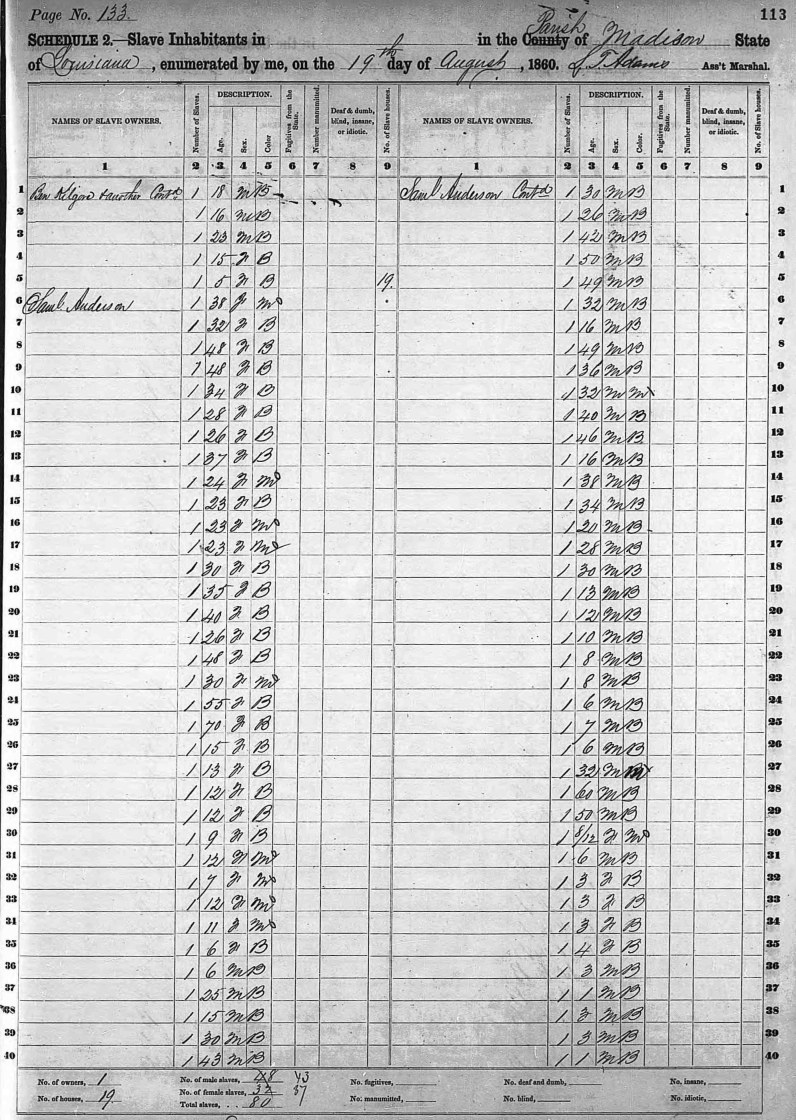 Page No. 133. 113
SCHEDULE 2.—Slave Inhabitants in in the County Parish of Madison State
of Louisiana, enumerated by me, on the 19th day of August, 1860. S. T. Adams Ass't Marshal.
NAMES OF SLAVE OWNERS. Number of Slaves. DESCRIPTION. Age. Sex. Color Fugitives from the State. Number manumitted. Deaf & dumb, blind, insane, or idiotic. No. of Slave houses. NAMES OF SLAVE OWNERS. Number of Slaves. DESCRIPTION. Age. Sex. Color. Fugitives from the State. Number manumitted. Deaf & dumb, blind, insane, or idiotic. No. of Slave houses.
1 2 3 4 5 6 7 8 9 1 2 3 4 5 6 7 8 9
1 Ben Kilgore & another Contd 1 18 M B Saml Anderson Contd 1 30 M B 1
2 1 16 M B 1 26 M B 2
3 1 23 M B 1 42 M B 3
4 1 15 F B 1 50 M B 4
5 1 5 F B 19 1 49 M B 5
6 Saml Anderson 1 38 F M 1 32 M B 6
7 1 32 F B 1 16 M B 7
8 1 48 F B 1 49 M B 8
9 1 48 F B 1 36 M B 9
10 1 34 F B 1 32 M M 10
11 1 28 F B 1 40 M B 11
12 1 26 F B 1 46 M B 12
13 1 37 F B 1 16 M B 13
14 1 24 F M 1 38 M B 14
15 1 23 F B 1 34 M B 15
16 1 23 F M 1 20 M B 16
17 1 23 F M 1 28 M B 17
18 1 30 F B 1 30 M B 18
19 1 35 F B 1 13 M B 19
20 1 40 F B 1 12 M B 20
21 1 26 F B 1 10 M B 21
22 1 48 F B 1 8 M B 22
23 1 30 F M 1 8 M B 23
24 1 55 F B 1 6 M B 24
25 1 70 F B 1 7 M B 25
26 1 15 F B 1 6 M B 26
27 1 13 F B 1 32 M M 27
28 1 12 F B 1 60 M B 28
29 1 12 F B 1 50 M B 29
30 1 9 F B 1 8/12 F M 30
31 1 12 F M 1 6 M B 31
32 1 7 F M 1 3 F B 32
33 1 12 F M 1 3 F B 33
34 1 11 F M 1 3 F B 34
35 1 6 F B 1 4 F B 35
36 1 6 M B 1 3 M B 36
37 1 25 M B 1 1 M B 37
38 1 15 M B 1 3 M B 38
39 1 30 M B 1 3 M B 39
40 1 43 M B 1 1 M B 40
No. of owners, 1 No. of male slaves, 48 43 No. fugitives, No. of deaf and dumb, No. insane,
No. of houses, 19 No. of female slaves, 32 37 No. manumitted, No. blind, No. idiotic,
Total slaves, 80